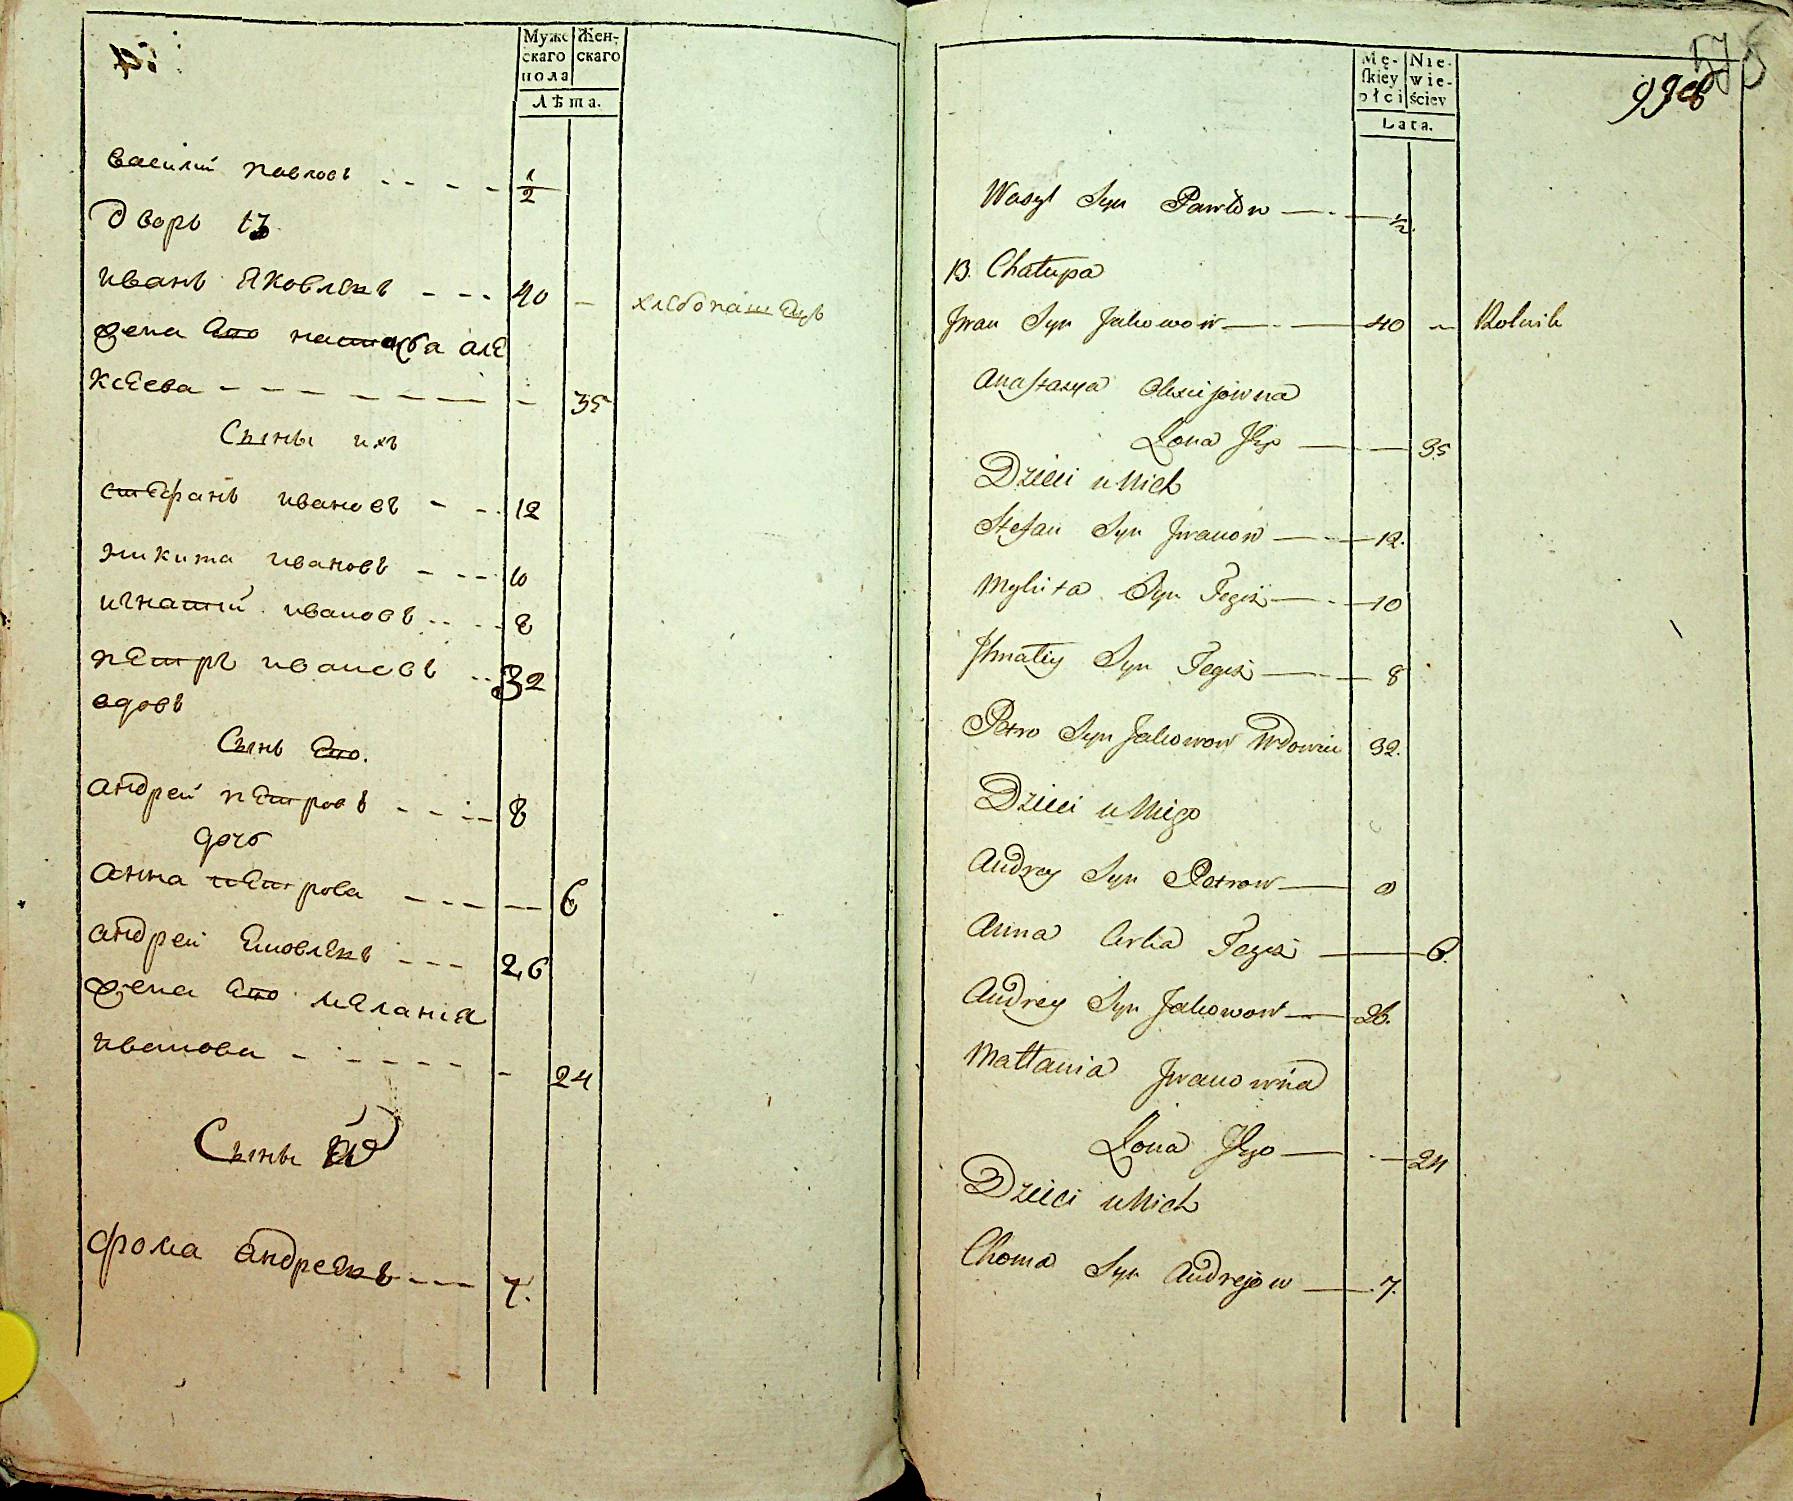 Мужс
скаго
пола
Жен-
скаго
Лѣта.
василий павловъ 1/2
дворъ 13
иванъ яковлевъ 40 — хлебопашецъ
жена его настасья але
ксеева 35
Сыны ихъ
стефанъ ивановъ 12
никита ивановъ 10
игнатий ивановъ 8
петръ ивановъ 32
вдовъ
Сынъ его.
андрей петровъ 8
дочь
анна петрова 6
андрей яковлевъ 26
жена его мелания
иванова 24
Сыны
фома андреевъ 7.
Mę-
skiey
płci
Nie-
wie-
ściey
Lata.
Wasyl Syn Pawłow 1/2.
13. Chałupa
Jwan Syn Jakowow 40 — Rolnik
Anastazya Olexijowna
Żona Jego 35
Dzieci u Nich
Stefan Syn Jwanow 12.
Mykita Syn Tegoż 10
Jhnatiy Syn Tegoż 8
Petro Syn Jakowow Wdowiec 32.
Dzieci u Niego
Andrey Syn Petrow 8
Anna Corka Tegoż 6.
Andrey Syn Jakowow 26.
Małania Jwanowna
Żona Jego 24
Dzieci u Nich
Choma Syn Andrejow 7.